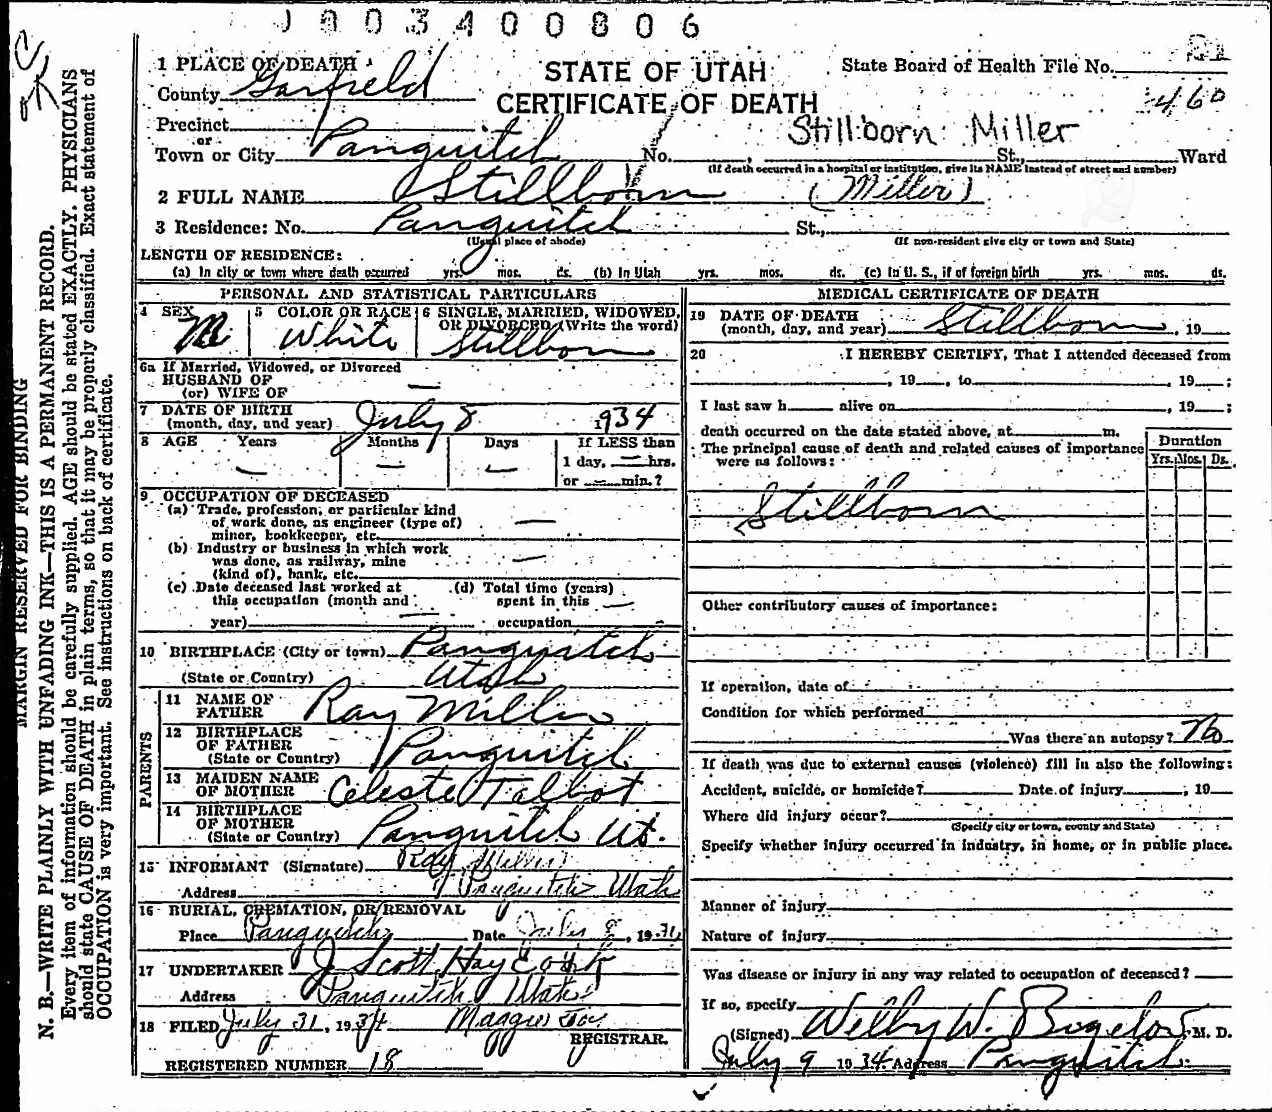 J003400806
1 PLACE OF DEATH
County Garfield
STATE OF UTAH
CERTIFICATE OF DEATH
State Board of Health File No. 81
460
Precinct
or
Town or City Panguitch No. , St., Ward
Stillborn Miller
(If death occurred in a hospital or institution, give its NAME instead of street and number)
2 FULL NAME Stillborn (Miller)
3 Residence: No. Panguitch St.,
(Usual place of abode) (If non-resident give city or town and State)
LENGTH OF RESIDENCE:
(a) In city or town where death occurred yrs. mos. ds. (b) In Utah yrs. mos. ds. (c) In U. S., if of foreign birth yrs. mos. ds.
PERSONAL AND STATISTICAL PARTICULARS
4 SEX M
5 COLOR OR RACE White
6 SINGLE, MARRIED, WIDOWED, OR DIVORCED (Write the word) Stillborn
6a If Married, Widowed, or Divorced
HUSBAND OF —
(or) WIFE OF
7 DATE OF BIRTH
(month, day, and year) July 8 1934
8 AGE Years Months Days If LESS than
— — — 1 day, — hrs.
or — min.?
9 OCCUPATION OF DECEASED
(a) Trade, profession, or particular kind
of work done, as engineer (type of) —
minor, bookkeeper, etc.
(b) Industry or business in which work
was done, as railway, mine —
(kind of), bank, etc.
(c) Date deceased last worked at (d) Total time (years)
this occupation (month and spent in this —
year) — occupation
10 BIRTHPLACE (City or town) Panguitch
(State or Country) Utah
PARENTS
11 NAME OF
FATHER Ray Miller
12 BIRTHPLACE
OF FATHER Panguitch
(State or Country)
13 MAIDEN NAME
OF MOTHER Celeste Talbot
14 BIRTHPLACE
OF MOTHER
(State or Country) Panguitch Ut.
15 INFORMANT (Signature) Ray Miller
Address Panguitch Utah
16 BURIAL, CREMATION, OR REMOVAL
Place Panguitch Date July 8, 1934
17 UNDERTAKER J Scott Haycock
Address Panguitch Utah
18 FILED July 31, 1934 Maggie Foy
REGISTRAR.
REGISTERED NUMBER 18
MEDICAL CERTIFICATE OF DEATH
19 DATE OF DEATH
(month, day, and year) Stillborn, 19
20 I HEREBY CERTIFY, That I attended deceased from
, 19 , to , 19 ;
I last saw h alive on , 19 ;
death occurred on the date stated above, at m.
The principal cause of death and related causes of importance
were as follows:
Duration
Yrs. Mos. Ds.
Stillborn
Other contributory causes of importance:
If operation, date of
Condition for which performed
Was there an autopsy? No
If death was due to external causes (violence) fill in also the following:
Accident, suicide, or homicide? Date of injury , 19
Where did injury occur?
(Specify city or town, county and State)
Specify whether injury occurred in industry, in home, or in public place.
Manner of injury
Nature of injury
Was disease or injury in any way related to occupation of deceased?
If so, specify
(Signed) Welby W. Bigelow, M. D.
July 9 1934 Address Panguitch
MARGIN RESERVED FOR BINDING
N. B.—WRITE PLAINLY WITH UNFADING INK—THIS IS A PERMANENT RECORD.
Every item of information should be carefully supplied. AGE should be stated EXACTLY. PHYSICIANS
should state CAUSE OF DEATH in plain terms, so that it may be properly classified. Exact statement of
OCCUPATION is very important. See instructions on back of certificate.